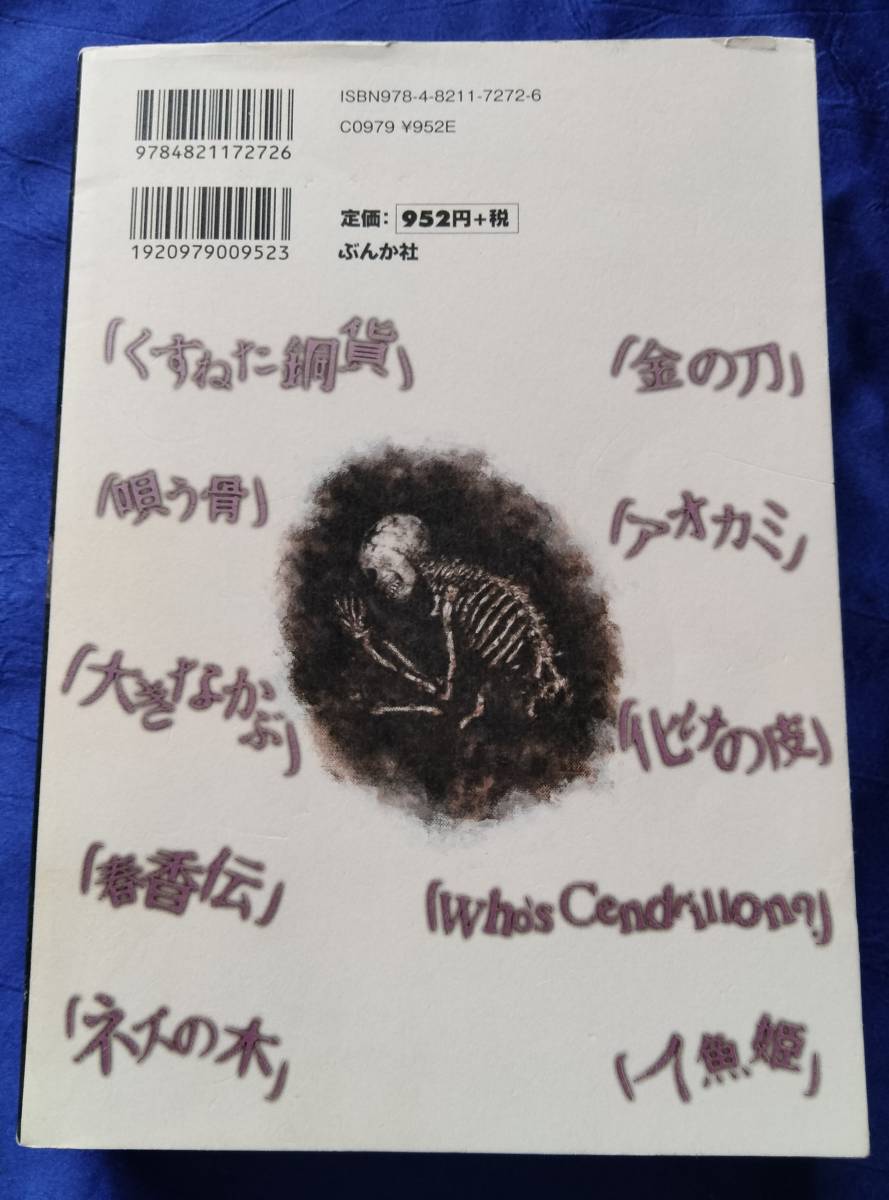 ISBN978-4-8211-7272-6
C0979 ¥952E
9784821172726
定価: 952円+税
ぶんか社
1920979009523
「くすねた銅貨」
「金の刀」
「唄う骨」
「アオカミ」
「大きなかぶ」
「化けの皮」
「春香伝」
「Who's Cendrillon?」
「ネズの木」
「人魚姫」